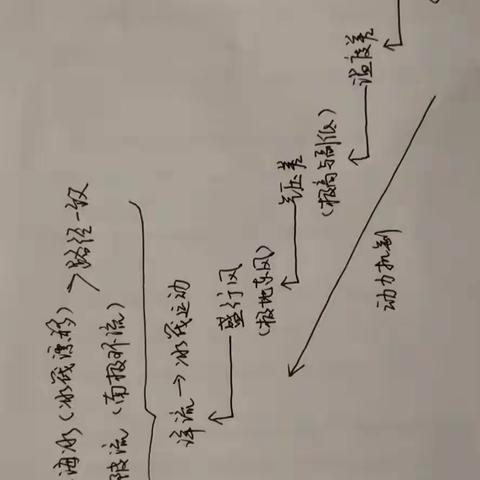 海冰(冰筏漂移)
流(南极环流)
>路径一致
洋流→冰筏运动
盛行风
(极地东风)
气压差
(极高与副低)
温度差
动力机制